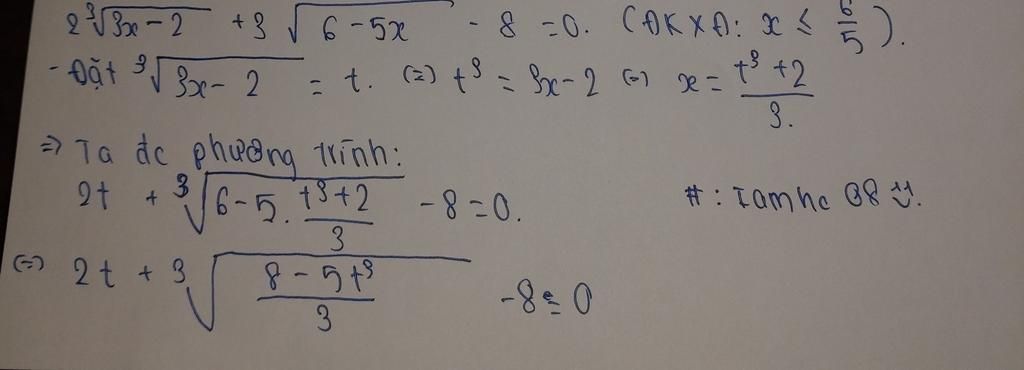 2∛(3x-2) + 3√(6-5x) - 8 = 0. (ĐKXĐ: x ≤ 6/5).
- Đặt ∛(3x-2) = t. (=) t³ = 3x-2 (=) x = (t³+2)/3.
=> Ta đc phương trình:
2t + ³√(6-5.(t³+2)/3) - 8 = 0. #: Iamhc 08 :).
(=) 2t + 3√((8-5t³)/3) - 8 = 0